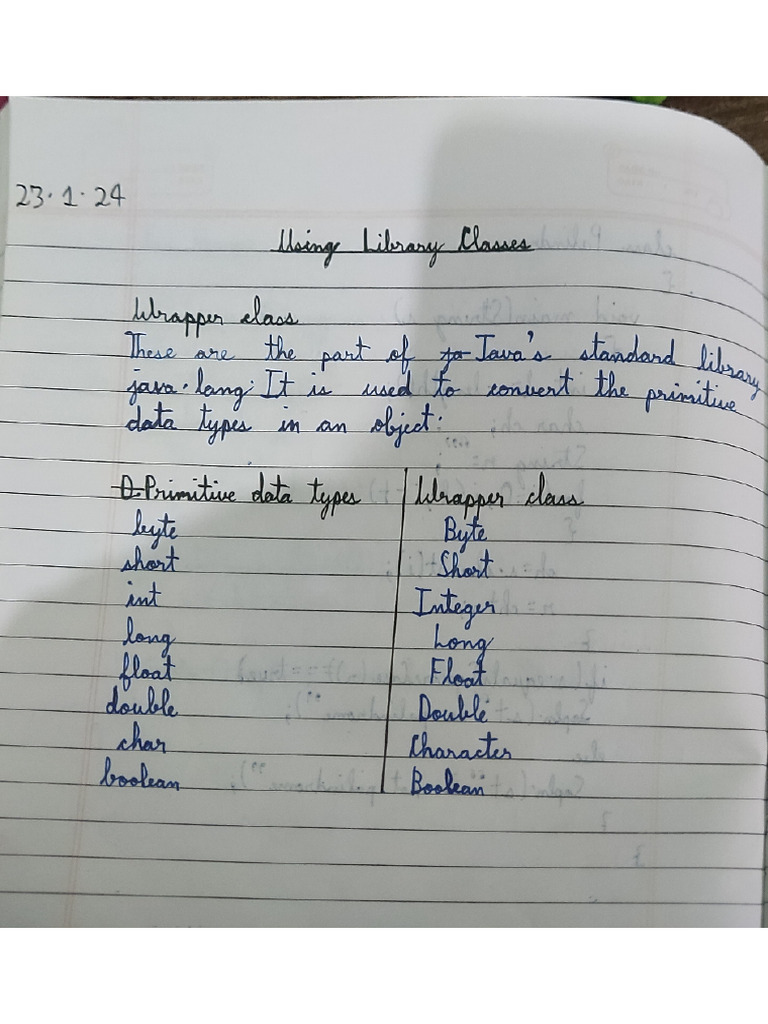 23.1.24
Using Library Classes
Wrapper class
These are the part of Java's standard library
java.lang. It is used to convert the primitive
data types in an object.
Primitive data types | Wrapper class
byte Byte
short Short
int Integer
long Long
float Float
double Double
char Character
boolean Boolean